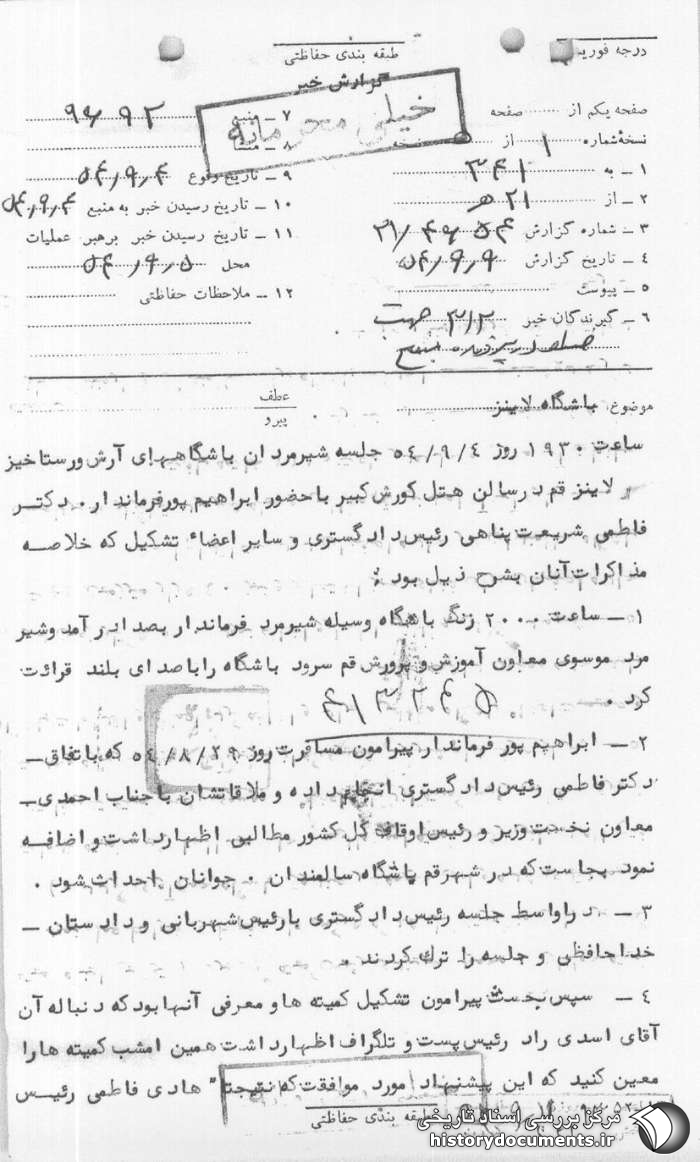 درجه فوریت
طبقه بندی حفاظتی
گزارش خبر
خیلی محرمانه
صفحه یکم از صفحه
نسخه شماره ۱ از نسخه
۱ ــ به ۳۴۱
۲ ــ از ۲۱ هـ
۳ ــ شماره گزارش
۴ ــ تاریخ گزارش ۵۴٫۹٫۹
۵ ــ پیوست
۶ ــ گیرندگان خبر ۳۱۲ جهت
۷ ــ منبع
۸ ــ منشأ
۹ ــ تاریخ وقوع ۵۴٫۹٫۴
۱۰ ــ تاریخ رسیدن خبر به منبع ۵۴٫۹٫۴
۱۱ ــ تاریخ رسیدن خبر برهبر عملیات
محل ۵۴٫۹٫۵
۱۲ ــ ملاحظات حفاظتی
موضوع: باشگاه لاینز
عطف
پیرو
ساعت ۱۹۳۰ روز ۵۴/۹/۴ جلسه شیرمردان باشگاههای آرش ورستاخیز
و لاینز قم در سالن هتل کورش کبیر با حضور ابراهیم پور فرماندار . دکتر
فاطمی شریعت پناهی رئیس دادگستری و سایر اعضاء تشکیل که خلاصه
مذاکرات آنان بشرح ذیل بود :
۱ ــ ساعت ۲۰۰۰ زنگ باشگاه وسیله شیرمرد فرماندار بصدا در آمد وشیر
مرد موسوی معاون آموزش و پرورش قم سرود باشگاه را با صدای بلند قرائت
کرد .
۲ ــ ابراهیم پور فرماندار پیرامون مسافرت روز ۵۴/۸/۲۹ که باتفاق ــ
دکتر فاطمی رئیس دادگستری انجام داده و ملاقاتشان با جناب احمدی ــ
معاون نخست وزیر و رئیس اوقاف کل کشور مطالبی اظهار داشت و اضافه
نمود بجاست که در شهر قم باشگاه سالمندان . جوانان احداث شود .
۳ ــ در اواسط جلسه رئیس دادگستری با رئیس شهربانی و دادستان ــ
خداحافظی و جلسه را ترک کردند .
۴ ــ سپس بحث پیرامون تشکیل کمیته ها و معرفی آنها بود که دنباله آن
آقای اسدی راد رئیس پست و تلگراف اظهار داشت همین امشب کمیته ها را
معین کنید که این پیشنهاد مورد موافقت که نتیجتا" هادی فاطمی رئیس
طبقه بندی حفاظتی
مرکز بررسی اسناد تاریخی
historydocuments.ir